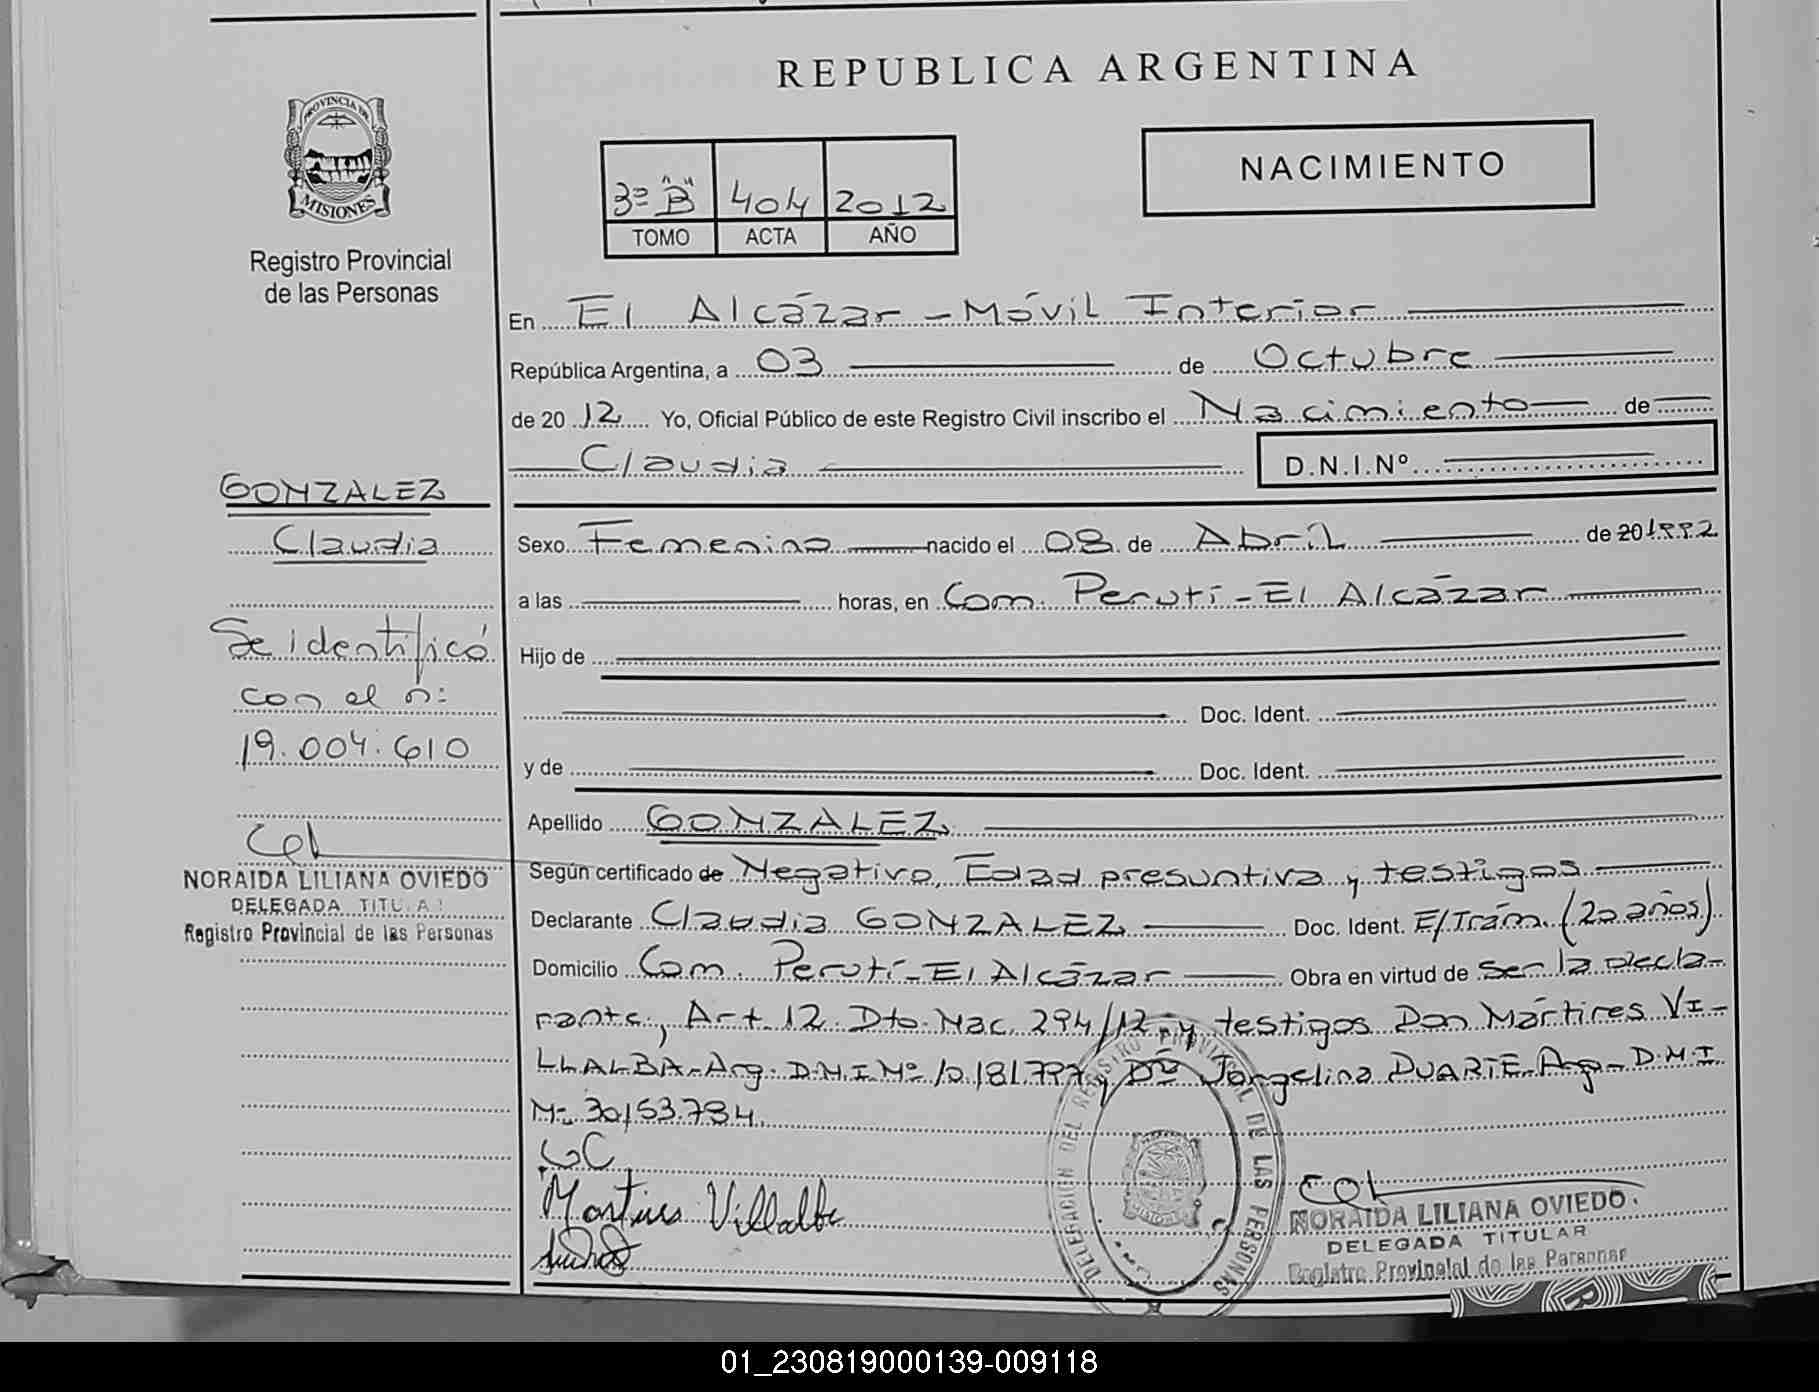 REPUBLICA ARGENTINA
PROVINCIA DE
MISIONES
Registro Provincial
de las Personas
NACIMIENTO
3º "B" 404 2012
TOMO ACTA AÑO
En El Alcázar - Móvil Interior
República Argentina, a 03 de Octubre
de 20 12 Yo, Oficial Público de este Registro Civil inscribo el Nacimiento de
Claudia D.N.I.Nº
GONZALEZ
Claudia
Se identificó
con el nº:
19.004.610
NORAIDA LILIANA OVIEDO
DELEGADA TITULAR
Registro Provincial de las Personas
Sexo Femenino nacido el 08 de Abril de 20 1992
a las horas, en Com. Perutí - El Alcázar
Hijo de
Doc. Ident.
y de Doc. Ident.
Apellido GONZALEZ
Según certificado de Negativo, Edad presuntiva y testigos
Declarante Claudia GONZALEZ Doc. Ident. E/Trám. (20 años)
Domicilio Com. Perutí - El Alcázar Obra en virtud de ser la decla-
rante, Art. 12 Dto. Nac. 294/12 y testigos Don Mártires VI-
LLALBA - Arg. D.N.I. Nº 10.181.797 y Dña Jorgelina DUARTE - Arg - D.N.I.
Nº 30.153.784.
GC
Martires Villalba
DELEGACION DEL REGISTRO PROVINCIAL DE LAS PERSONAS
MISIONES
NORAIDA LILIANA OVIEDO
DELEGADA TITULAR
Registro Provincial de las Personas
01_230819000139-009118